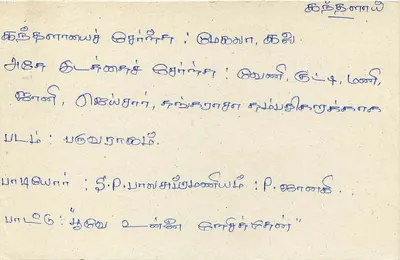 கந்தளாய்
கந்தளாயைச் சேர்ந்த : மேதவா, கலா
அதே இடத்தைச் சேர்ந்த : வேணி, குட்டி, மணி
ஜானி, ஜெய்சார், தங்கராசா தம்பதிகளுக்காக
படம் : பருவராகம்.
பாடியோர் : S.P.பாலசுப்ரமணியம் : P. ஜானகி . .
பாட்டு : "பூவே உன்னை நேசித்தேன்"